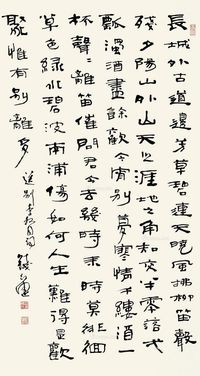 長城外古道邊芳草碧連天晚風拂柳笛聲
殘夕陽山外山天之涯地之角知交半零落弌
瓢濁酒盡餘歡今宵別夢寒情千縷酒一
杯聲聲離笛催問君今去幾時來時莫徘徊
草色綠水碧波南浦傷如何人生難得是歡
聚惟有別離多 送別李叔同句